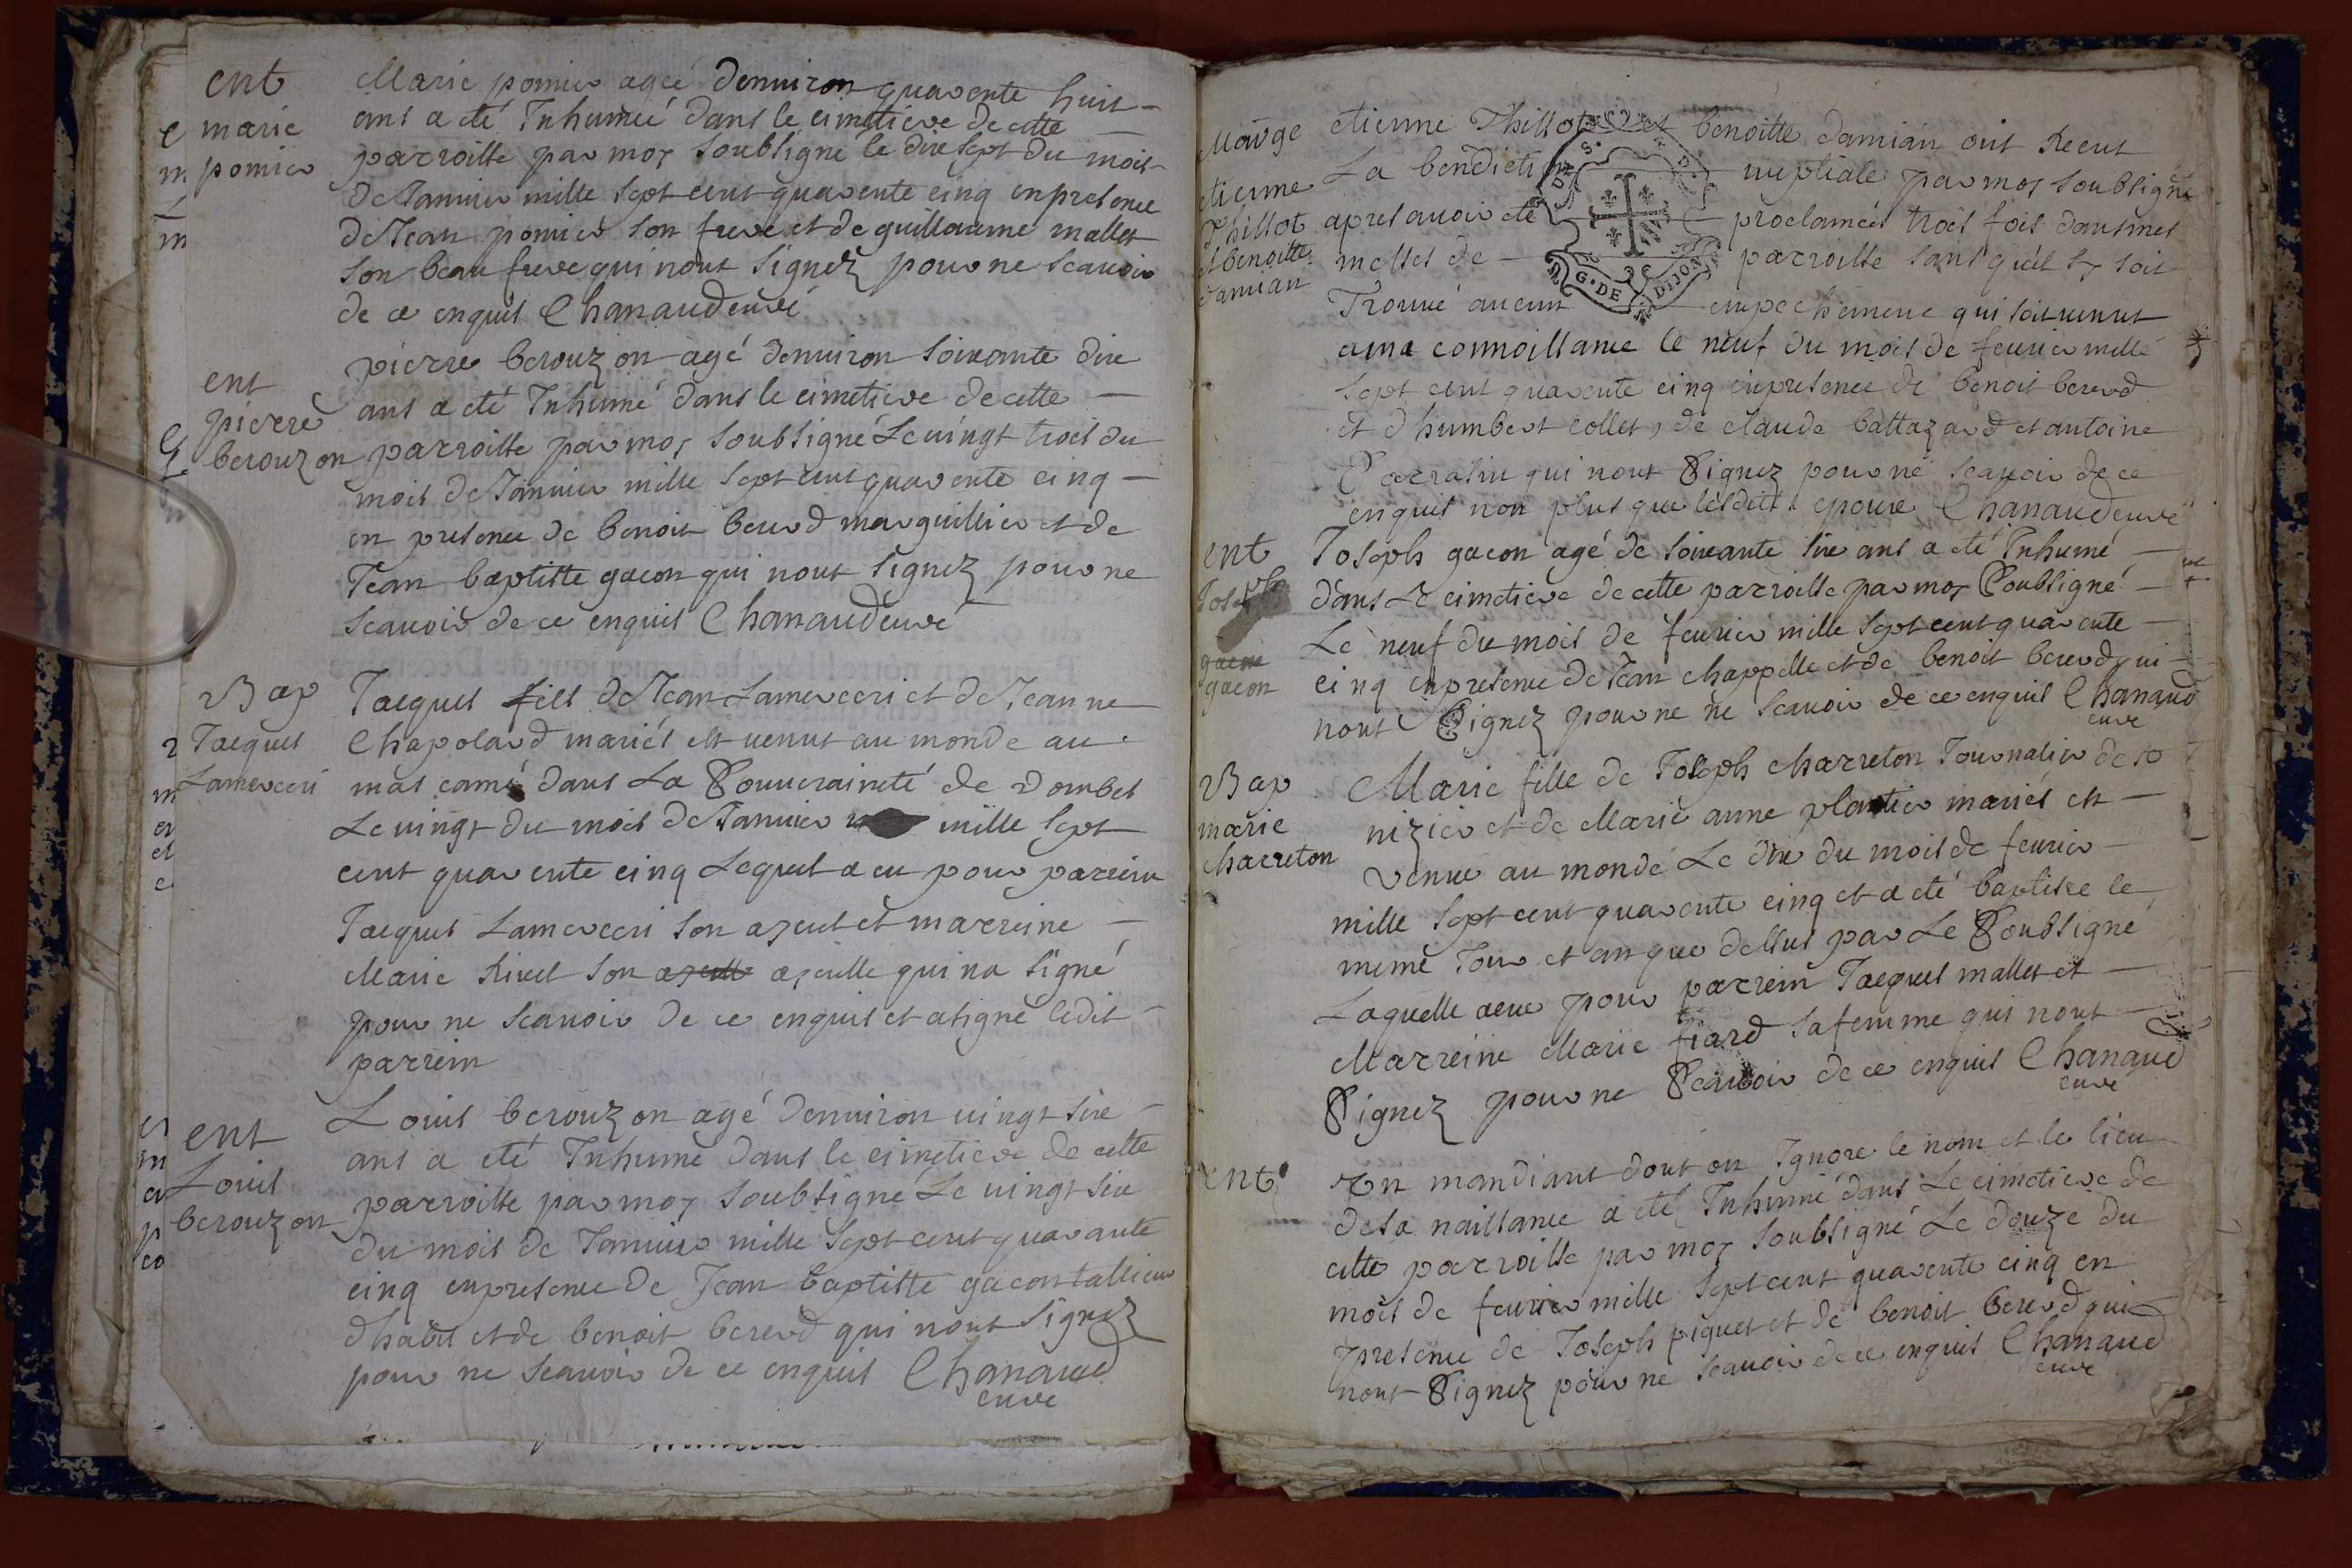 ent
marie
pomier
Marie pomier agée denuiron quarente huit
ans a eté Inhumée dans le cimetiere de cette
parroisse par moy soubsigné le dix sept du mois
de Januier mille sept cent quarente cinq en presence
de Jean pomier son frere et de guillaume mallet
son beau frere qui nont signez pour ne scauoir
de ce enquis Chanaud curé
ent
pierre
berouzon
pierre berouzon agé denuiron soixante dix
ans a eté Inhumé dans le cimetiere de cette
parroisse par moy soubsigné Le uingt trois du
mois de Januier mille sept cent quarente cinq
en presence de benoit bererd marguillier et de
Jean baptiste gacon qui nont signez pour ne
scauoir de ce enquis Chanaud curé
Bap
Jacques
Lamerceri
Jacques fils de Jean Lamerceri et de Jeanne
Chapolard mariés est uenut au monde au
mas camé dans La Souueraineté de Dombes
Le uingt du mois de Januier mille sept
cent quarente cinq Lequel a eu pour parrein
Jacques Lamerceri son ayeul et marreine
Marie Riuet son ayeulle qui na signé
pour ne scauoir de ce enquis et a signé ledit
parrein
ent
Louis
berouzon
Louis berouzon agé denuiron uingt six
ans a eté Inhumé dans le cimetiere de cette
parroisse par moy soubsigné Le uingt six
du mois de Januier mille sept cent quarante
cinq en presence de Jean baptiste gacon tallieur
dhabit et de benoit bererd qui nont signez
pour ne scauoir de ce enquis Chanaud
curé
Mariage
etienne
Thillot
et benoitte
damian
etienne Thillot et benoitte damian ont Receut
La benediction nuptiale par moy soubsigné
apres auoir eté proclamés trois fois dans mes
messes de parroisse sans quil sy soit
Trouué aucun empechement qui soit uenut
a ma connoissance le neuf du mois de feurier mille
sept cent quarente cinq en presence de benoit bererd
et dhumbert collet, de claude battazard et antoine
Sarrasin qui nont Signez pour ne scauoir de ce
enquis non plus que lesdits epoux Chanaud curé
ent
Joseph
gacon
Joseph gacon agé de soixante six ans a eté Inhumé
dans Le cimetiere de cette parroisse par moy Soubsigné
Le neuf du mois de feurier mille sept cent quarente
cinq en presence de Jean chappelle et de benoit bererd qui
nont Signez pour ne ne scauoir de ce enquis Chanaud
curé
Bap
marie
charreton
Marie fille de Joseph charreton Journalier de st
nizier et de Marie anne plantier mariés est
venue au monde Le dix du mois de feurier
mille sept cent quarente cinq et a eté baptisee le
meme Jour et an que dessus par Le Soubsigné
Laquelle a eue pour parrein Jacques mallet et
Marreine Marie fiard sa femme qui nont
Signez pour ne Scauoir de ce enquis Chanaud
curé
ent
Un mandiant dont on Ignore le nom et le lieu
de sa naissance a eté Inhumé dans Le cimetiere de
cette parroisse par moy soubsigné Le douze du
mois de feurier mille sept cent quarente cinq en
presence de Joseph piquet et de benoit bererd qui
nont Signez pour ne scauoir de ce enquis Chanaud
curé
G. DE DIJON